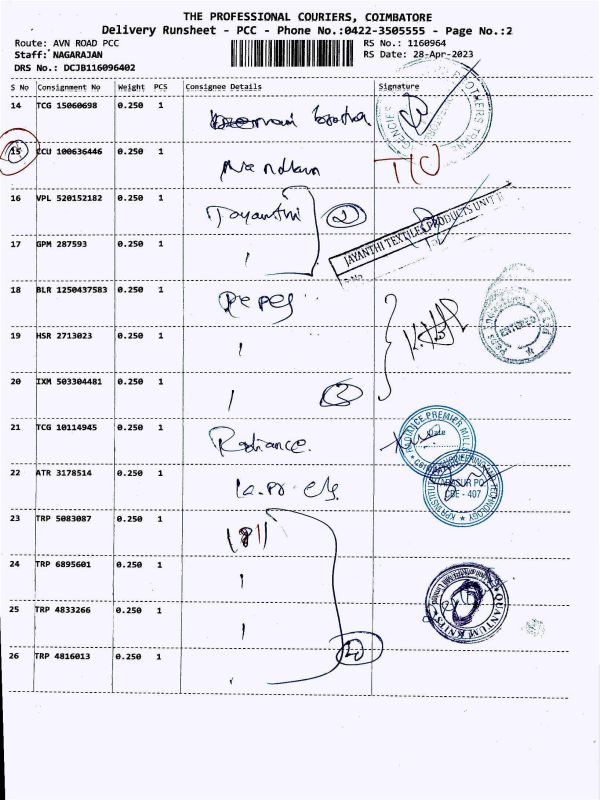 THE PROFESSIONAL COURIERS, COIMBATORE
Delivery Runsheet - PCC - Phone No.:0422-3505555 - Page No.:2
Route: AVN ROAD PCC
RS No.: 1160964
Staff: NAGARAJAN
RS Date: 28-Apr-2023
DRS No.: DCJB116096402
S No Consignment No Weight PCS Consignee Details Signature
14 TCG 15060698 0.250 1
15 CCU 100636446 0.250 1 T/O
16 VPL 520152182 0.250 1 Jayanthi 2
JAYANTHI TEXTILES PRODUCTS UNIT II
17 GPM 287593 0.250 1
18 BLR 1250437583 0.250 1
ENTERED
19 HSR 2713023 0.250 1
20 IXM 503304481 0.250 1 3
21 TCG 10114945 0.250 1 Radiance.
RADIANCE PREMIER MILL
Date
22 ATR 3178514 0.250 1
KPR INSTITUTE TECHNOLOGY
ARASUR PO
CBE - 407
23 TRP 5083087 0.250 1
24 TRP 6895601 0.250 1
QUANTUM KNITS
25 TRP 4833266 0.250 1
26 TRP 4816013 0.250 1